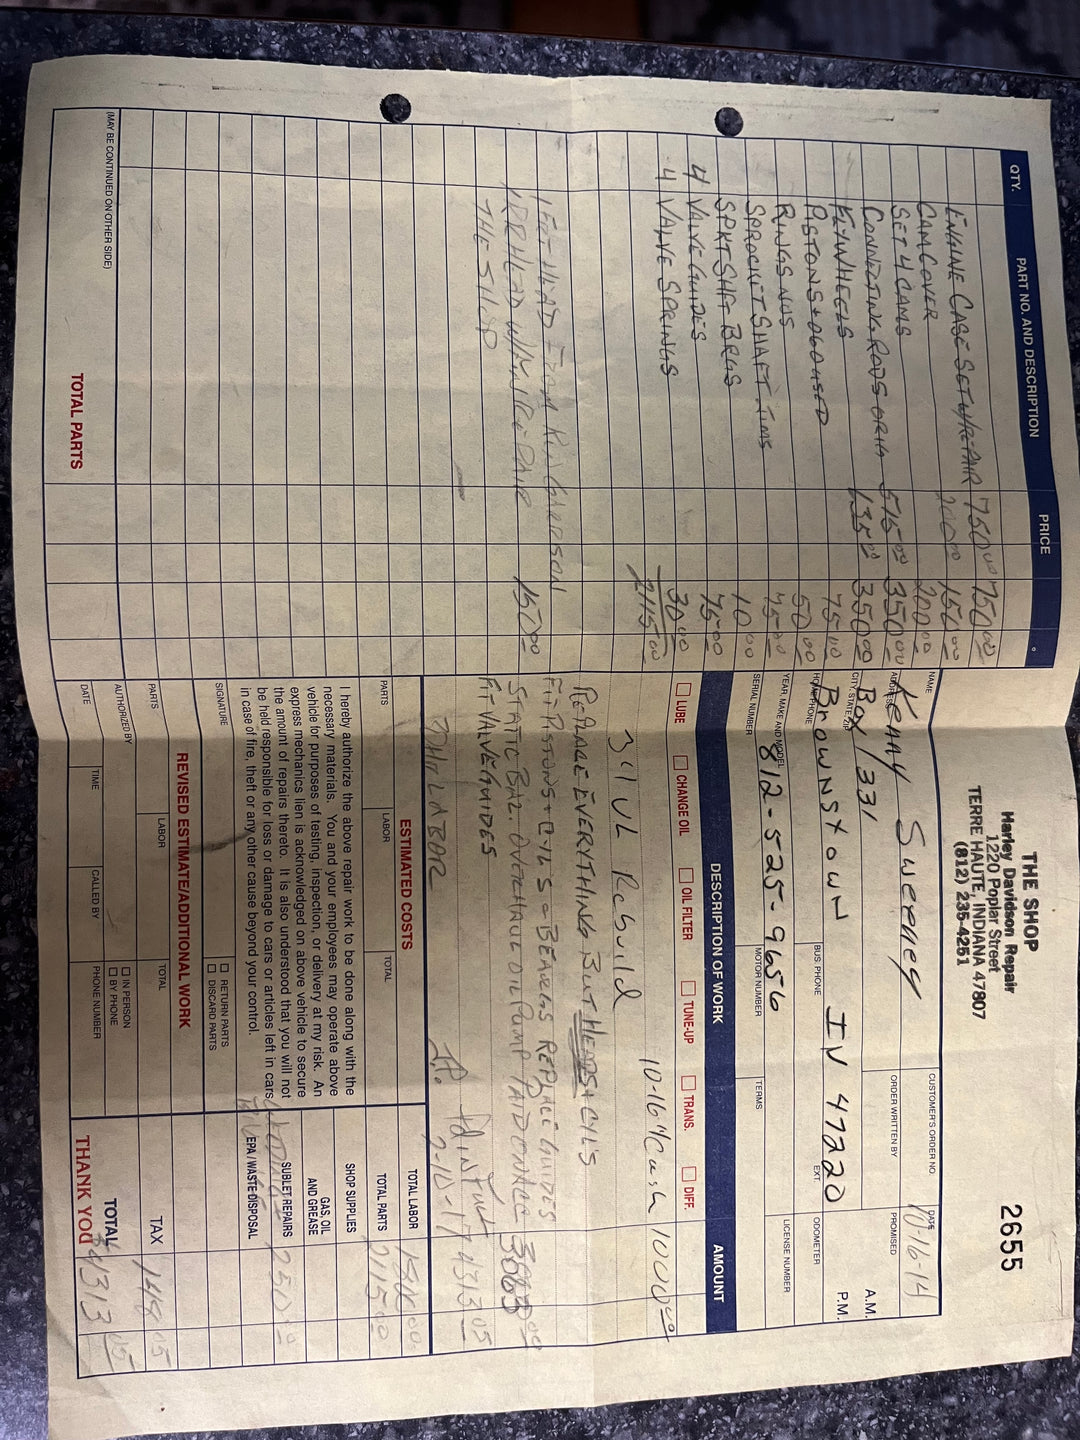 THE SHOP
Harley Davidson Repair
1220 Poplar Street
TERRE HAUTE, INDIANA 47807
(812) 235-4251
2655
QTY. PART NO. AND DESCRIPTION PRICE
ENGINE CASE SET W/REPAIR 750.00 750.00
CAM COVER 200.00 150.00
SET 4 CAMS 200.00
CONNECTING RODS ORIG 515.00 350.00
FLYWHEELS 635.00 350.00
PISTONS + .060 USED 75.00
RINGS NOS 50.00
SPROCKET SHAFT TIMS 75.00
SPKT SHFT BRGS 10.00
4 VALVE GUIDES 75.00
4 VALVE SPRINGS 30.00
2115.00
1 FRT HEAD FROM KEN GARRSON
1 RR HEAD W/MINI REPAIR 150.00
THE SHOP
(MAY BE CONTINUED ON OTHER SIDE)
TOTAL PARTS
NAME Kenny Sweeney
CUSTOMER'S ORDER NO.
DATE 10-16-14
ADDRESS Box 1331
ORDER WRITTEN BY
PROMISED
A.M.
P.M.
CITY, STATE, ZIP Brownstown IN 47220
HOME PHONE
BUS. PHONE
EXT.
ODOMETER
YEAR, MAKE AND MODEL 812-525-9656
MOTOR NUMBER
LICENSE NUMBER
SERIAL NUMBER
TERMS
DESCRIPTION OF WORK AMOUNT
LUBE CHANGE OIL OIL FILTER TUNE-UP TRANS. DIFF.
10-16 Cash 1000.00
3 4" UL Rebuild
REPLACE EVERYTHING BUT HEADS & CYLS
FIT PISTONS + CYL'S - BEARGS REPLACE GUIDES
STATIC BAL. OVERHAUL OIL PUMP PAID BALANCE
FIT VALVE GUIDES Pd in Full 4313.05
LABOR 2-10-17
ESTIMATED COSTS
PARTS LABOR TOTAL
I hereby authorize the above repair work to be done along with the
necessary materials. You and your employees may operate above
vehicle for purposes of testing, inspection, or delivery at my risk. An
express mechanics lien is acknowledged on above vehicle to secure
the amount of repairs thereto. It is also understood that you will not
be held responsible for loss or damage to cars or articles left in cars
in case of fire, theft or any other cause beyond your control.
SIGNATURE
RETURN PARTS
DISCARD PARTS
REVISED ESTIMATE/ADDITIONAL WORK
PARTS LABOR TOTAL
AUTHORIZED BY
IN PERSON
BY PHONE
DATE TIME CALLED BY PHONE NUMBER
TOTAL LABOR 1800.00
TOTAL PARTS 2115.00
SHOP SUPPLIES
GAS, OIL
AND GREASE
SUBLET REPAIRS 250.00
EPA / WASTE DISPOSAL
TAX 148.05
TOTAL 4313.05
THANK YOU